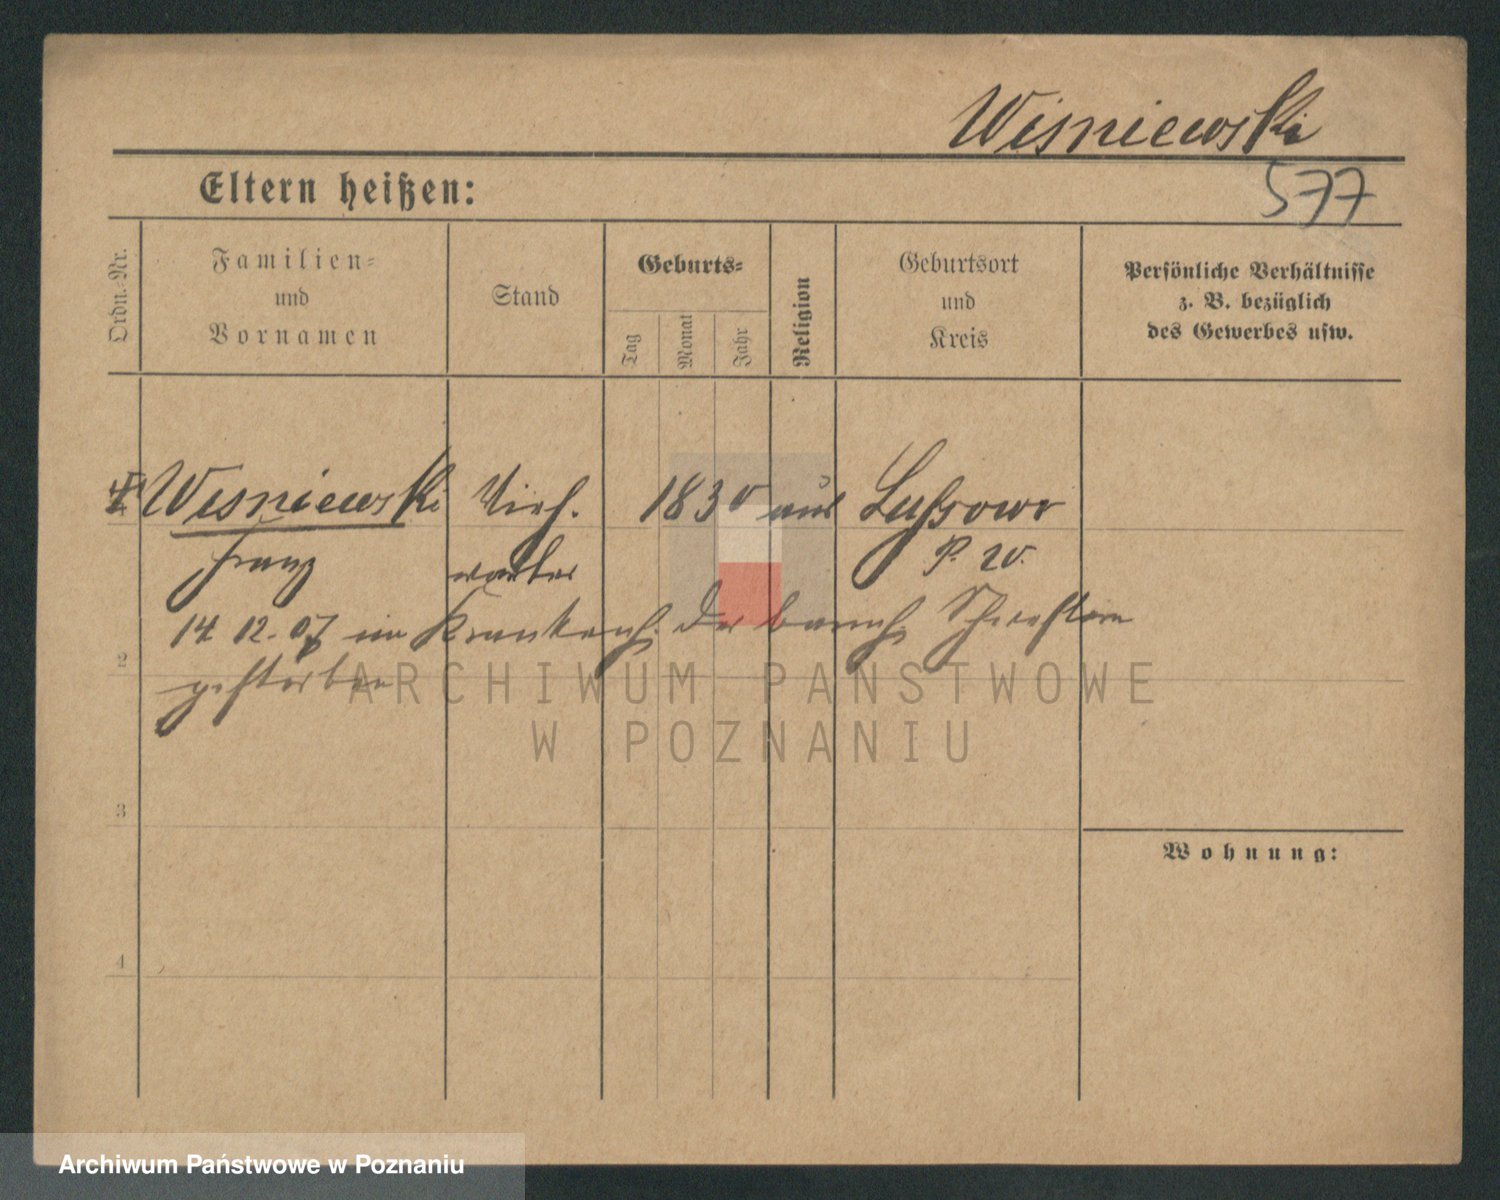 Wisniewski
577
Eltern heißen:
Ordn.-Nr.
Familien-
und
Vornamen
Stand
Geburts-
Tag
Monat
Jahr
Religion
Geburtsort
und
Kreis
Persönliche Verhältnisse
z. B. bezüglich
des Gewerbes usw.
1 Wisniewski Vieh. 1830 aus Lussowo
Franz wärter P. W.
14 12. 07 im Krankenh. der barmh. Schwestern
2
gestorben
ARCHIWUM PAŃSTWOWE
W POZNANIU
3
Wohnung:
4
Archiwum Państwowe w Poznaniu